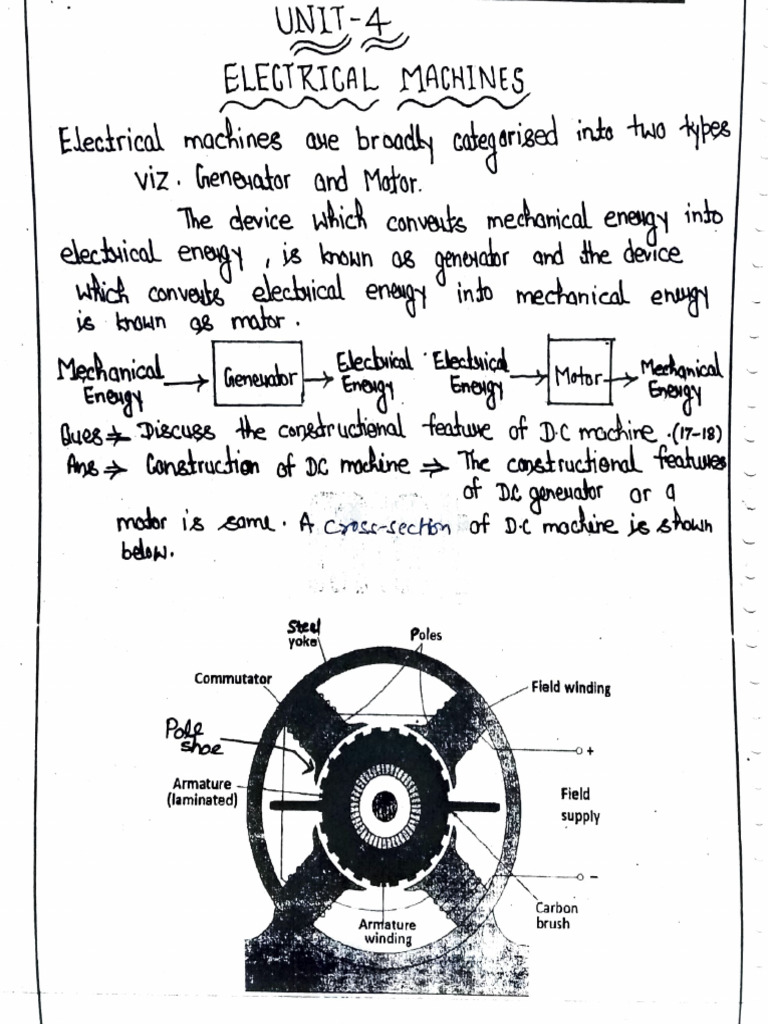 UNIT-4
ELECTRICAL MACHINES
Electrical machines are broadly categorised into two types
viz. Generator and Motor.
The device which converts mechanical energy into
electrical energy, is known as generator and the device
which converts electrical energy into mechanical energy
is known as motor.
Mechanical Energy → Generator → Electrical Energy
Electrical Energy → Motor → Mechanical Energy
Ques ⇒ Discuss the constructional feature of D.C machine. (17-18)
Ans ⇒ Construction of DC machine ⇒ The constructional features
of DC generator or a
motor is same. A cross-section of D.C machine is shown
below.
Steel
yoke
Poles
Commutator
Field winding
Pole
shoe
+
Armature
(laminated)
Field
supply
–
Carbon
brush
Armature
winding